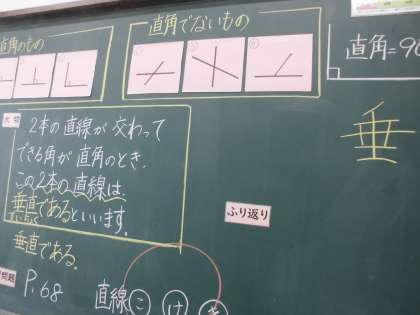 直角のもの
直角でないもの
直角=90
垂
大切
2本の直線が交わって
できる角が直角のとき、
この2本の直線は、
垂直であるといいます。
ふり返り
垂直である。
問題
P.68
直線 こ け き